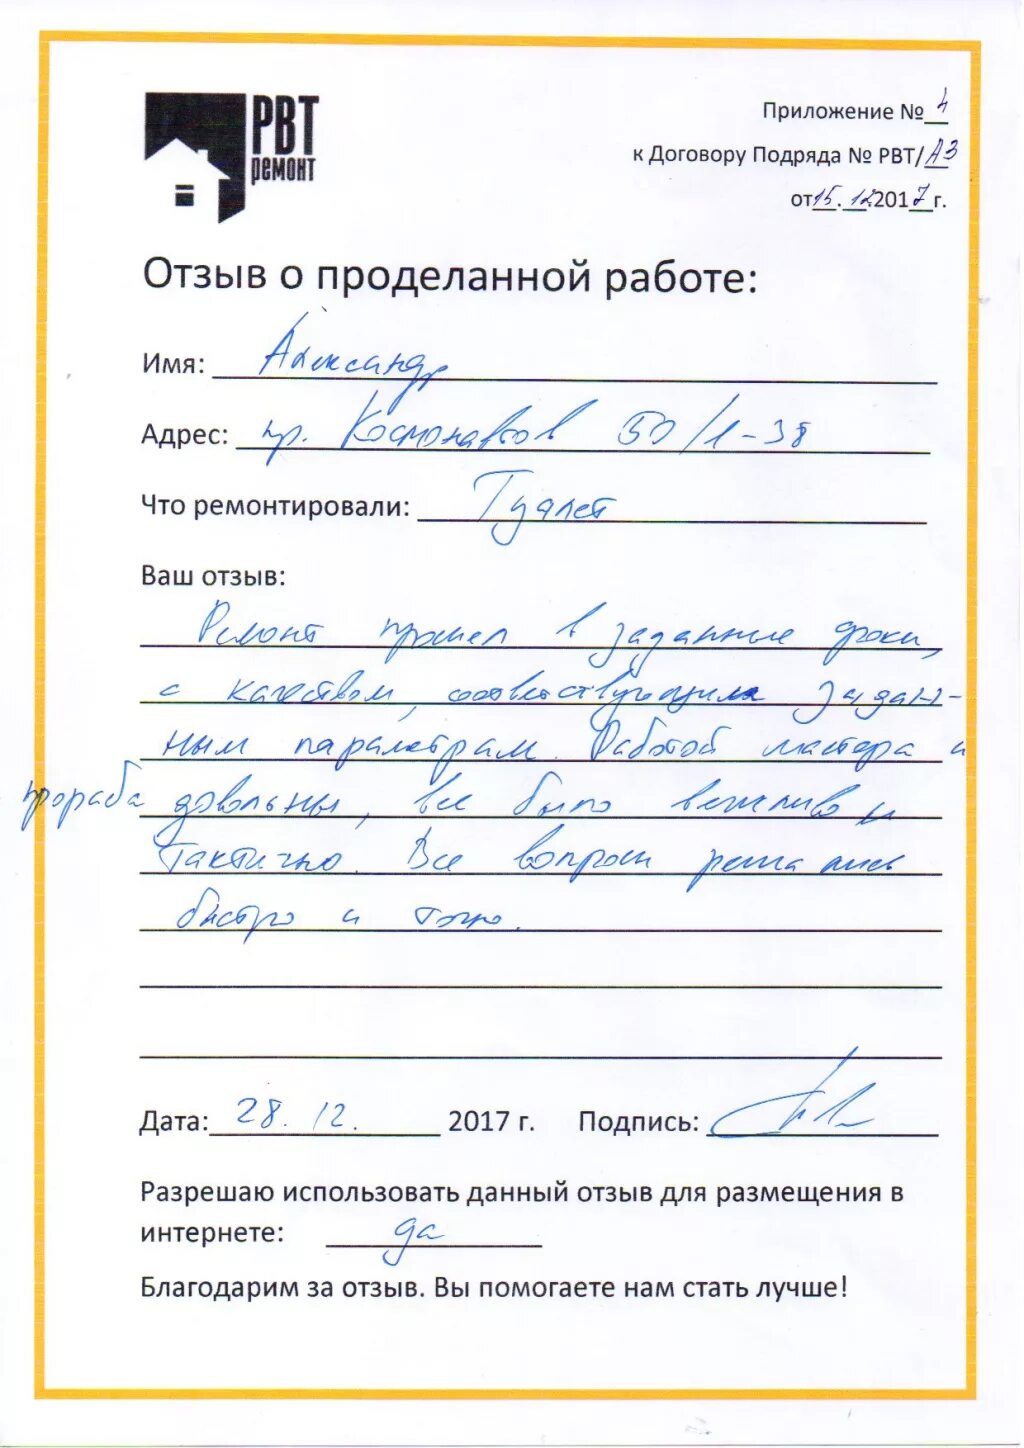 РВТ
ремонт
Приложение № 4
к Договору Подряда № РВТ/АЗ
от 15. 12.2017 г.
Отзыв о проделанной работе:
Имя: Александр
Адрес: пр. Космонавтов 50/1-38
Что ремонтировали: Туалет
Ваш отзыв:
Ремонт прошел в заданные сроки,
с качеством, соответствующим задан-
ным параметрам. Работой мастера и
прораба довольны, все было вежливо и
тактично. Все вопросы решались
быстро и точно.
Дата: 28. 12. 2017 г. Подпись:
Разрешаю использовать данный отзыв для размещения в
интернете: да
Благодарим за отзыв. Вы помогаете нам стать лучше!